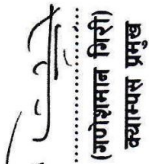 (गणेशमान गिरी)
क्याम्पस प्रमुख